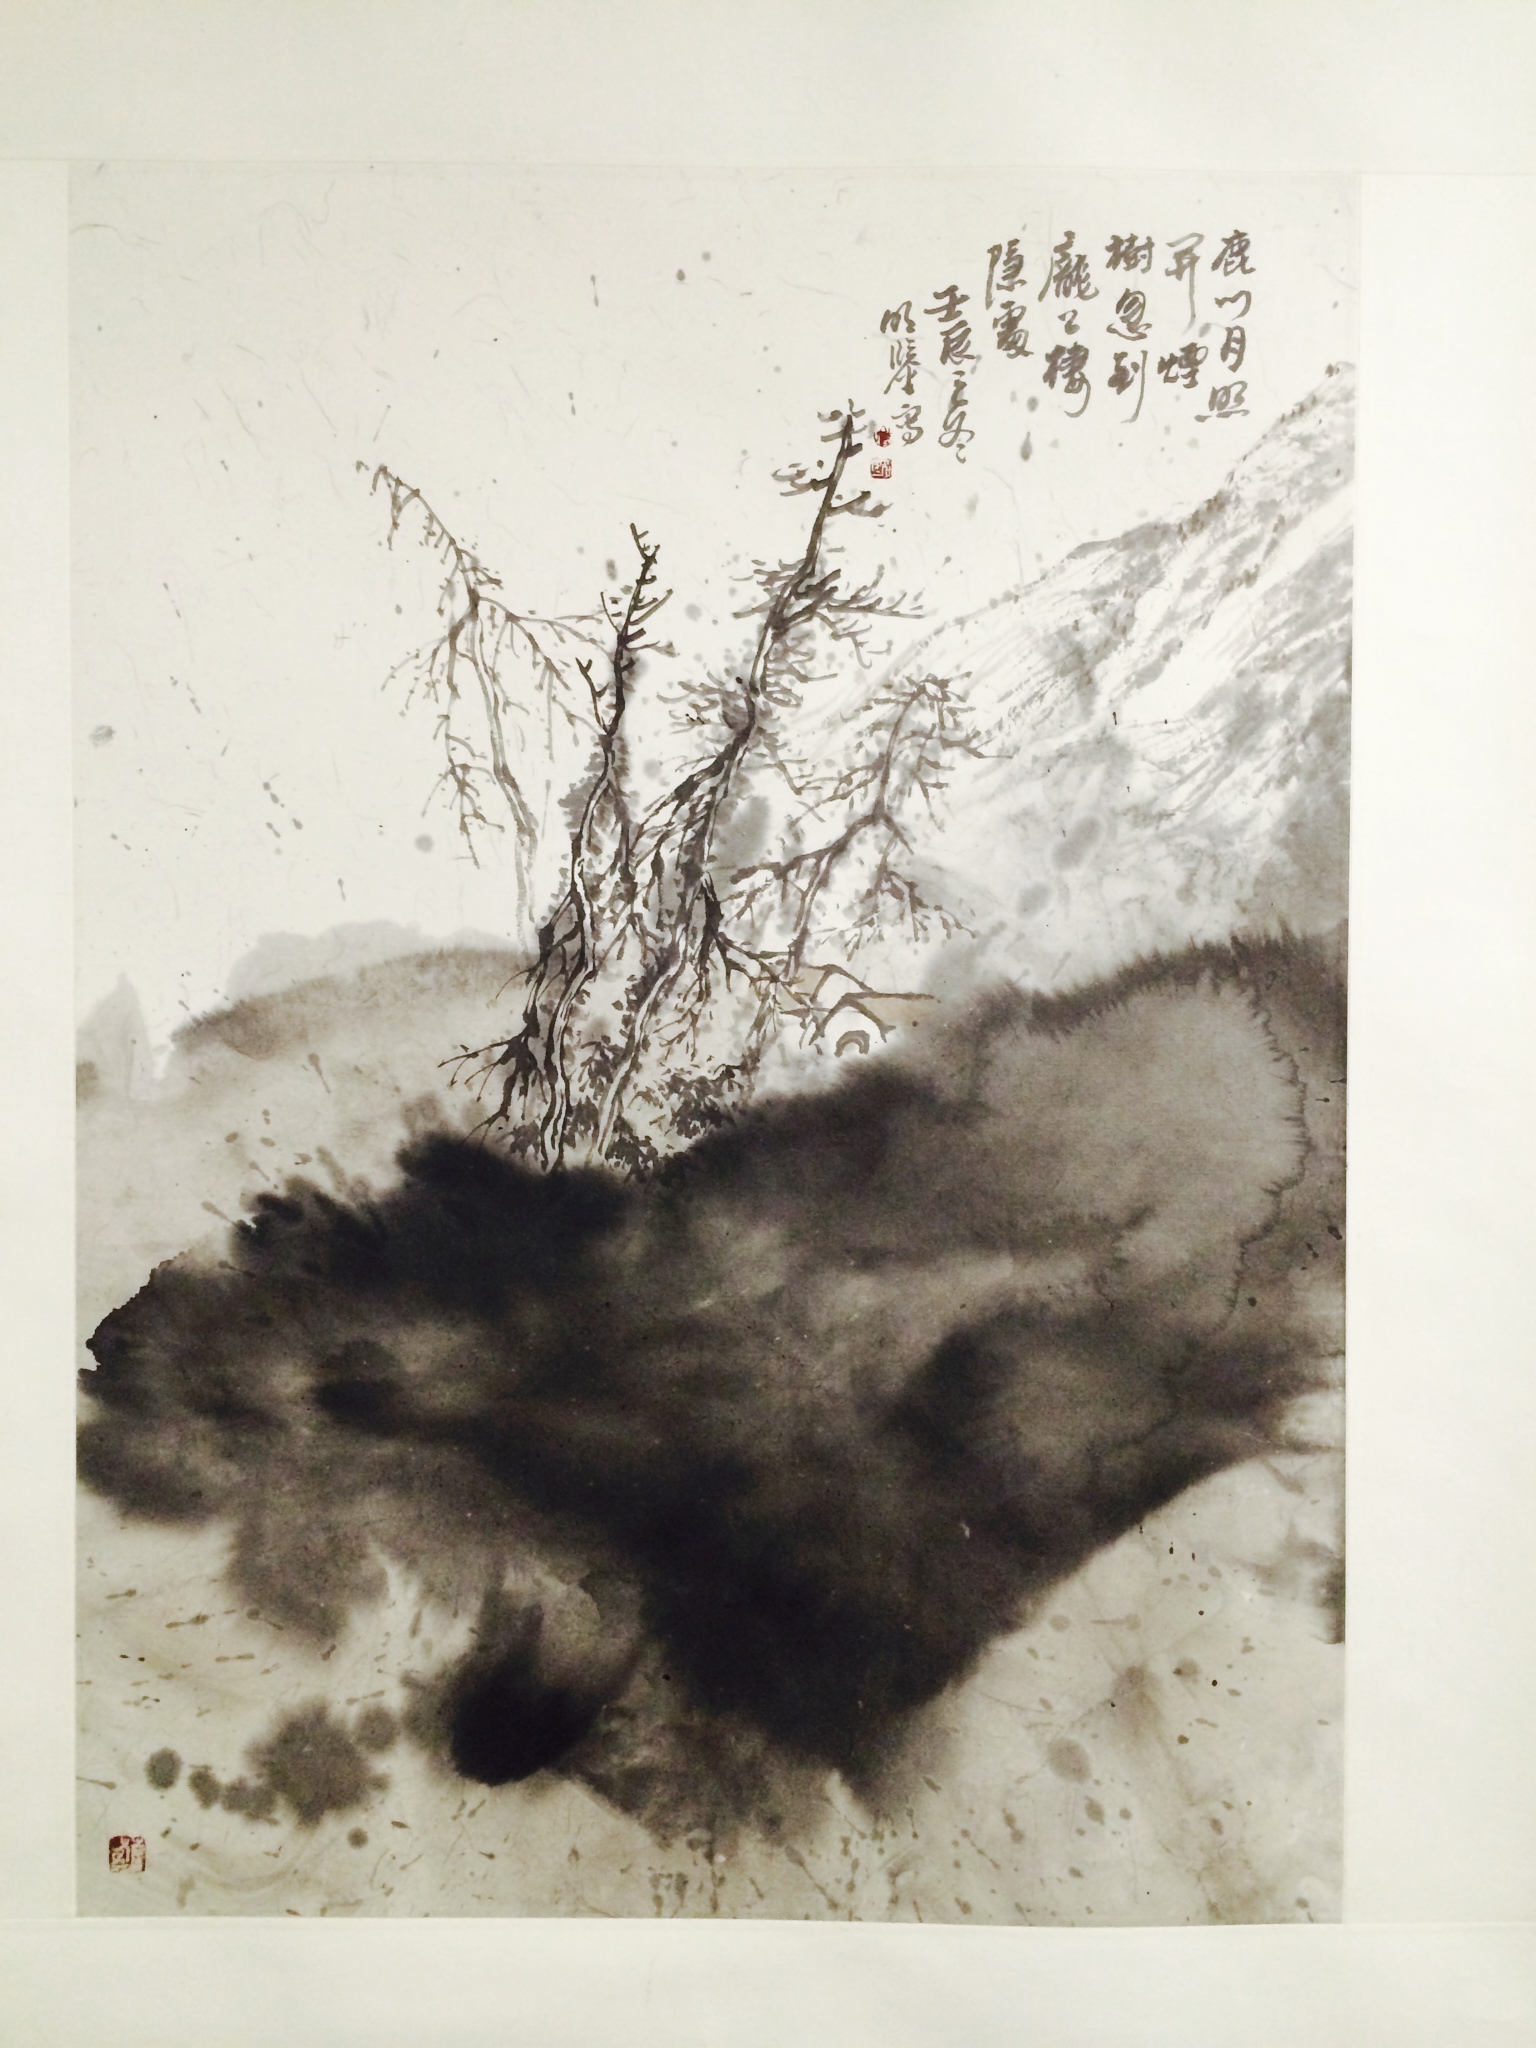 鹿門月照
開煙
樹忽到
龐公棲
隱處
壬辰之冬
明
寫